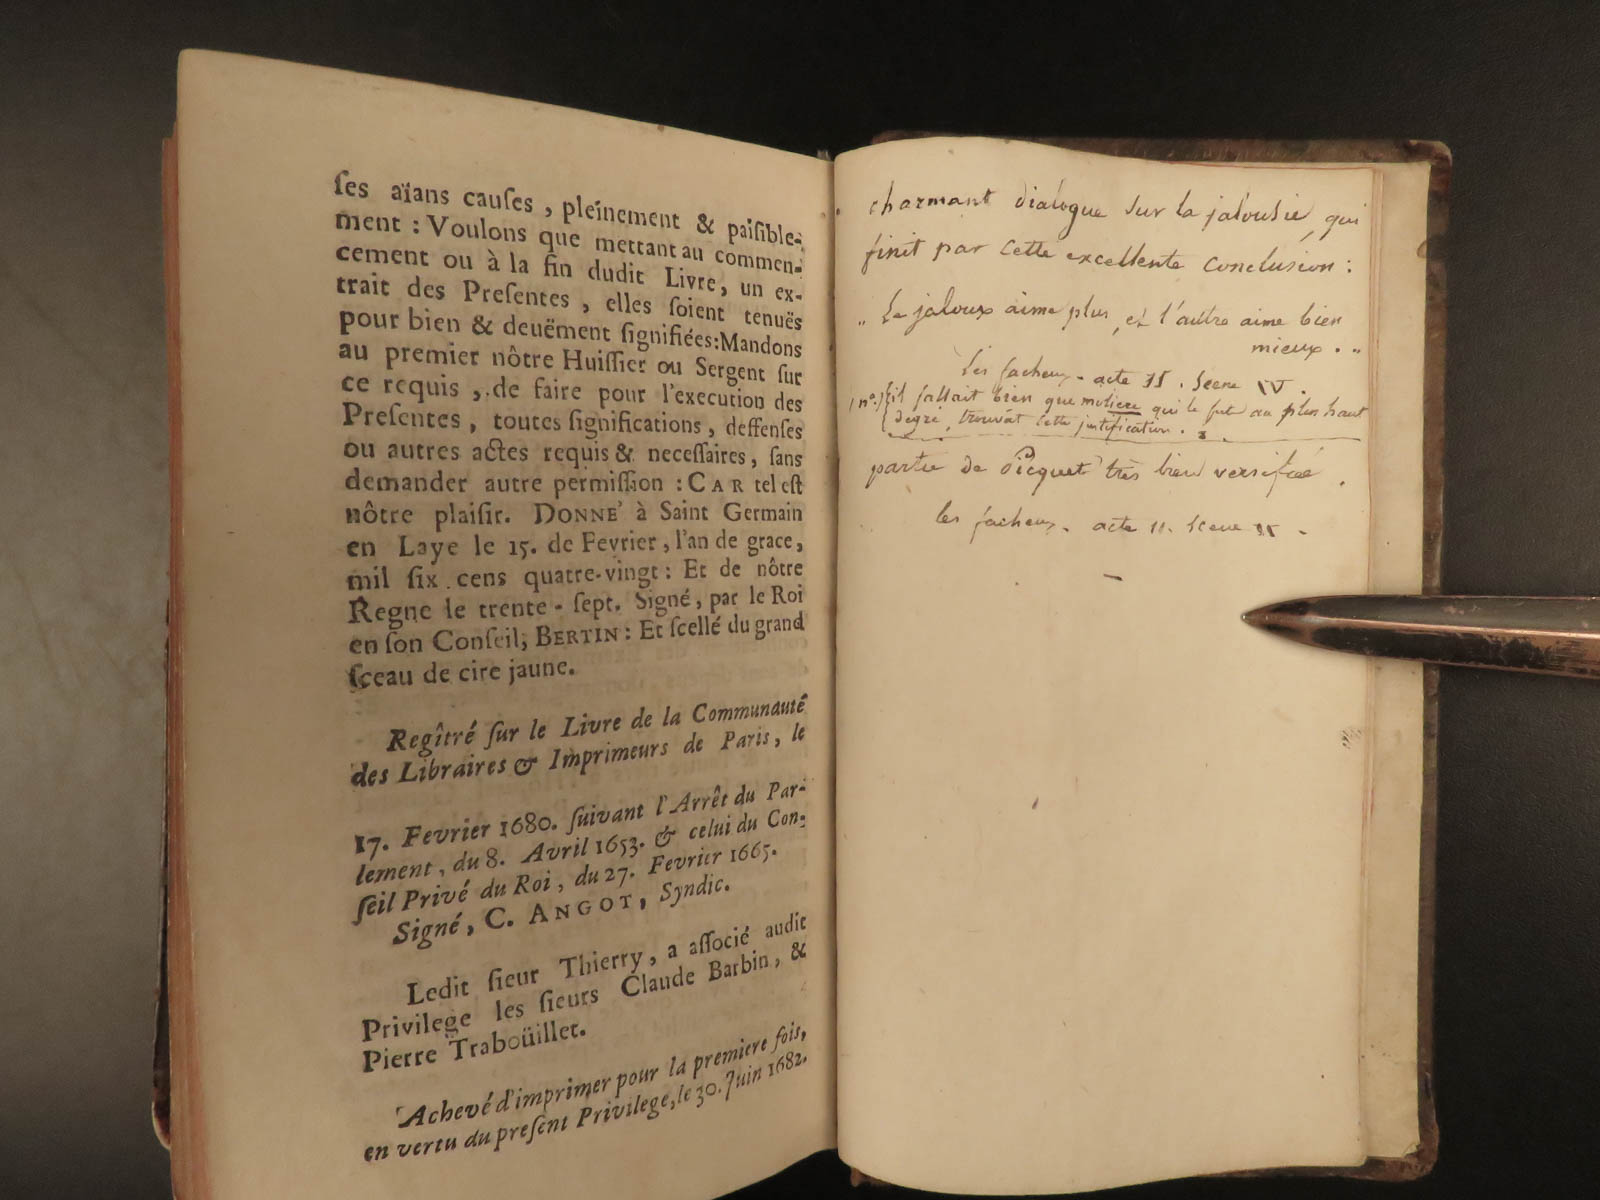 ſes aïans cauſes, pleinement & paiſible-
ment : Voulons que mettant au commen-
cement ou à la fin dudit Livre, un ex-
trait des Preſentes, elles ſoient tenuës
pour bien & deuëment ſignifiées : Mandons
au premier nôtre Huiſſier ou Sergent ſur
ce requis, de faire pour l'execution des
Preſentes, toutes ſignifications, deffenſes
ou autres actes requis & neceſſaires, ſans
demander autre permiſſion : CAR tel eſt
nôtre plaiſir. DONNE' à Saint Germain
en Laye le 15. de Fevrier, l'an de grace,
mil ſix cens quatre-vingt : Et de nôtre
Regne le trente-ſept. Signé, par le Roi
en ſon Conſeil, BERTIN : Et ſcellé du grand
ſceau de cire jaune.
Regîtré ſur le Livre de la Communauté
des Libraires & Imprimeurs de Paris, le
17. Fevrier 1680. ſuivant l'Arrêt du Par-
lement, du 8. Avril 1653. & celui du Con-
ſeil Privé du Roi, du 27. Fevrier 1665.
Signé, C. ANGOT, Syndic.
Ledit ſieur Thierry, a aſſocié audit
Privilege les ſieurs Claude Barbin, &
Pierre Traboüillet.
Achevé d'imprimer pour la premiere fois,
en vertu du preſent Privilege, le 30. Juin 1682.
charmant dialogue sur la jalousie, qui
finit par cette excellente conclusion :
„ Le jaloux aime plus, et l'autre aime bien
mieux. „
Les facheux. acte II. Scene IV.
(nª.) il fallait bien que moliere qui le fut au plus haut
degré, trouvat cette justification.
partie de Picquet très bien versifiée.
les facheux. acte II. Scene II.